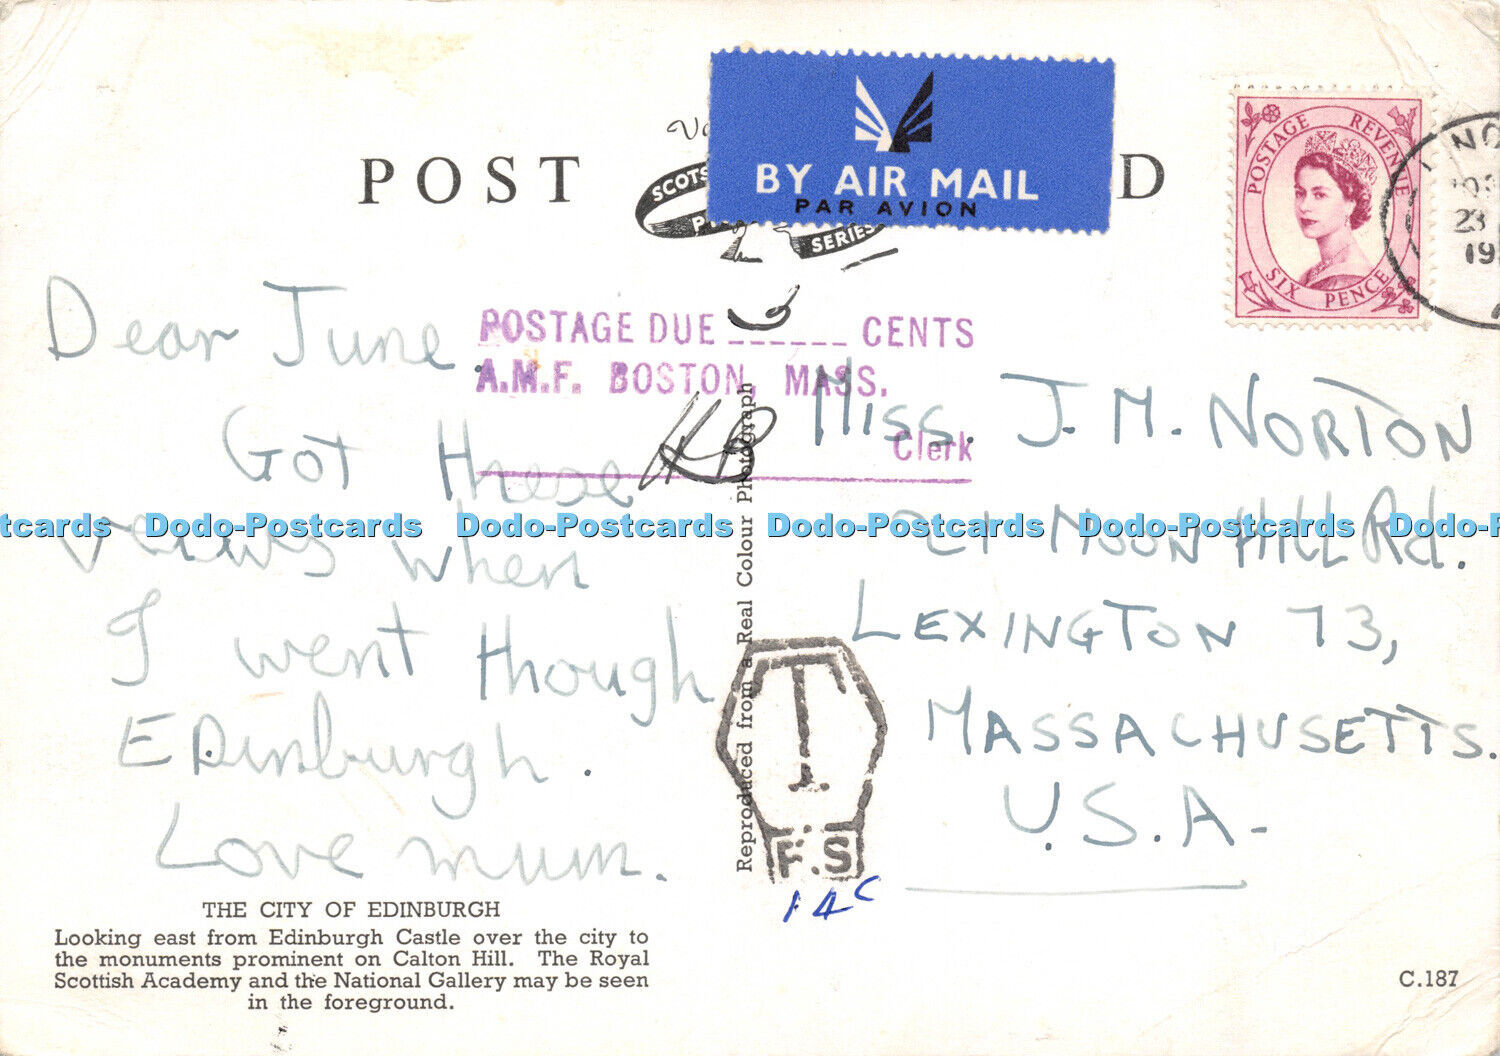 POST D
BY AIR MAIL
PAR AVION
SCOTS
SERIES
POSTAGE REVENUE
SIX PENCE
23
19
Dear June.
Got these
views when
I went though
Edinburgh.
Love mum.
POSTAGE DUE ______ CENTS
A.M.F. BOSTON, MASS.
Clerk
Miss. J. M. NORTON
21 MOON HILL Rd.
LEXINGTON 73,
MASSACHUSETTS.
U.S.A-
Reproduced from a Real Colour Photograph
T.
F.S
14c
Dodo-Postcards Dodo-Postcards Dodo-Postcards Dodo-Postcards
THE CITY OF EDINBURGH
Looking east from Edinburgh Castle over the city to
the monuments prominent on Calton Hill. The Royal
Scottish Academy and the National Gallery may be seen
in the foreground.
C.187